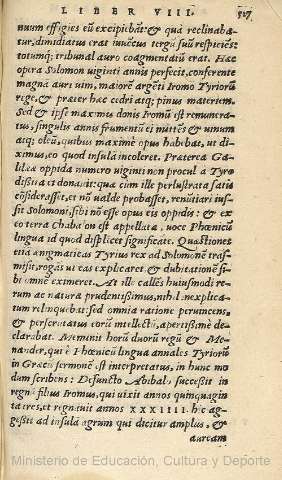 LIBER VIII. 507
nuum effigies eũ excipibãt: & quà reclinabã=
tur, dimidiatus erat iuuẽcus tergũ suũ respiciẽs:
totumq; tribunal auro coagmentatũ erat. Hæc
opera Solomon uiginti annis perfecit, conferente
magnã auri uim, maiorẽ argẽti Iromo Tyriorũ
rege, & præter hæc cedri atq; pinus materiem.
Sed & ipse maximis donis Iromũ est remunera=
tus, singulis annis frumentũ ei mittẽs & uinum
atq; oleũ, quibus maximè opus habebat, ut di=
ximus, eo quod insulã incoleret. Præterea Ga=
lilææ oppida numero uiginti non procul a Tyro
dißita ei donauit: quæ cùm ille perlustrata satis
cõsiderasset, et nõ ualde probasset, renũtiari ius=
sit Solomoni, sibi nõ esse opus eis oppidis: & ex
eo terra Chabalon est appellata. uoce Phœnicũ
lingua id quod displicet significãte. Quæstiones
etiã ænigmaticas Tyrius rex ad Solomonẽ tras=
misit, rogãs ut eas explicaret, & dubitationẽ si=
bi omnẽ eximeret. At ille callẽs huiusmodi re=
rum ac natura prudentißimus, nihil inexplica=
tum relinquebat: sed omnia ratione peruincens,
& perscrutatus eorũ intellectũ, apertißimè de=
clarabat. Meminit horũ duorũ regũ & Me=
nander, qui è Phœnicũ lingua annales Tyriorũ
in Græcũ sermonẽ est interpretatus, in hunc mo
dum scribens: Defuncto Abibalo, succeßit in
regnũ filius Iromus, qui uixit annos quinquagin
ta tres, et regnauit annos XXXIIII. hic ag=
geßit ad insulã agrum qui dicitur amplus, &
auream
Ministerio de Educación, Cultura y Deporte